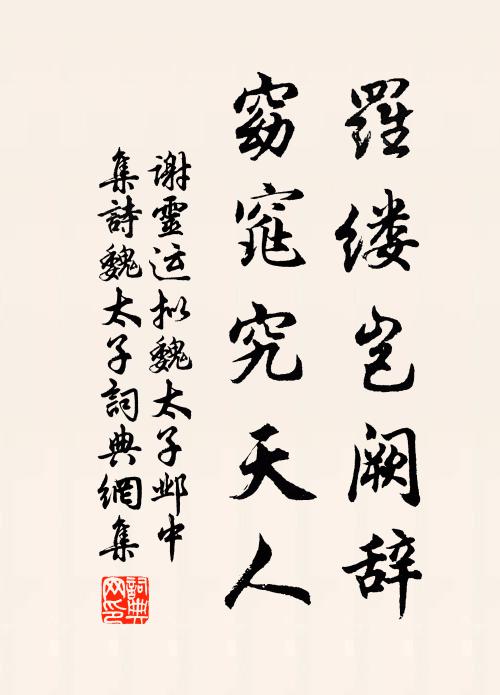 羅缕岂阙辞
窈窕究天人
谢靈运拟魏太子邺中
集詩魏太子詞典網集
詞典
网印